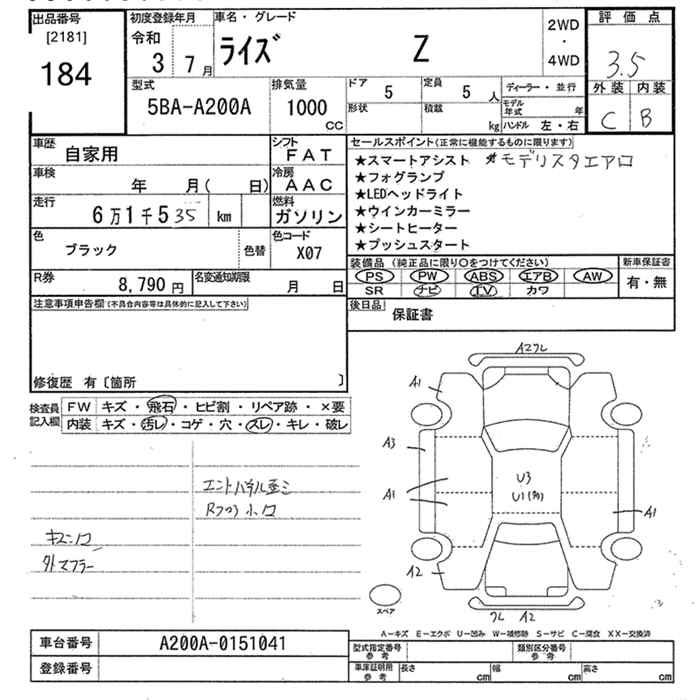 出品番号
[2181]
184
初度登録年月
令和
3 7月
車名・グレード
ライズ Z
2WD
・
4WD
評価点
3.5
外装 内装
C B
型式
5BA-A200A
排気量
1000
CC
ドア 5
定員 5 人
形状
積載 kg
ディーラー・並行
モデル年式 年
ハンドル 左・右
車歴 自家用
シフト FAT
車検 年 月( 日)
冷房 AAC
走行 6万1千535 km
燃料 ガソリン
色 ブラック 色替
色コード X07
R券 8,790 円
名変通知期限 月 日
セールスポイント(正常に機能するものに限ります)
★スマートアシスト ★モデリスタエアロ
★フォグランプ
★LEDヘッドライト
★ウインカーミラー
★シートヒーター
★プッシュスタート
装備品(純正品に限り○をつけてください)
PS PW ABS エアB AW
SR ナビ TV カワ
新車保証書
有・無
後日品 保証書
注意事項申告欄(不具合内容等は具体的に記入して下さい)
修復歴 有〔箇所 〕
検査員記入欄
FW キズ・飛石・ヒビ割・リペア跡・×要
内装 キズ・汚レ・コゲ・穴・スレ・キレ・破レ
A2クレ
A1
A3
A1
U3
U1
A1
A2
クレ A2
スペア
外マフラー
A-キズ E-エクボ U-凹み W-補修跡 S-サビ C-腐食 XX-交換済
車台番号 A200A-0151041
登録番号
型式指定番号参考
類別区分番号参考
車庫証明用参考
長さ cm
幅 cm
高さ cm